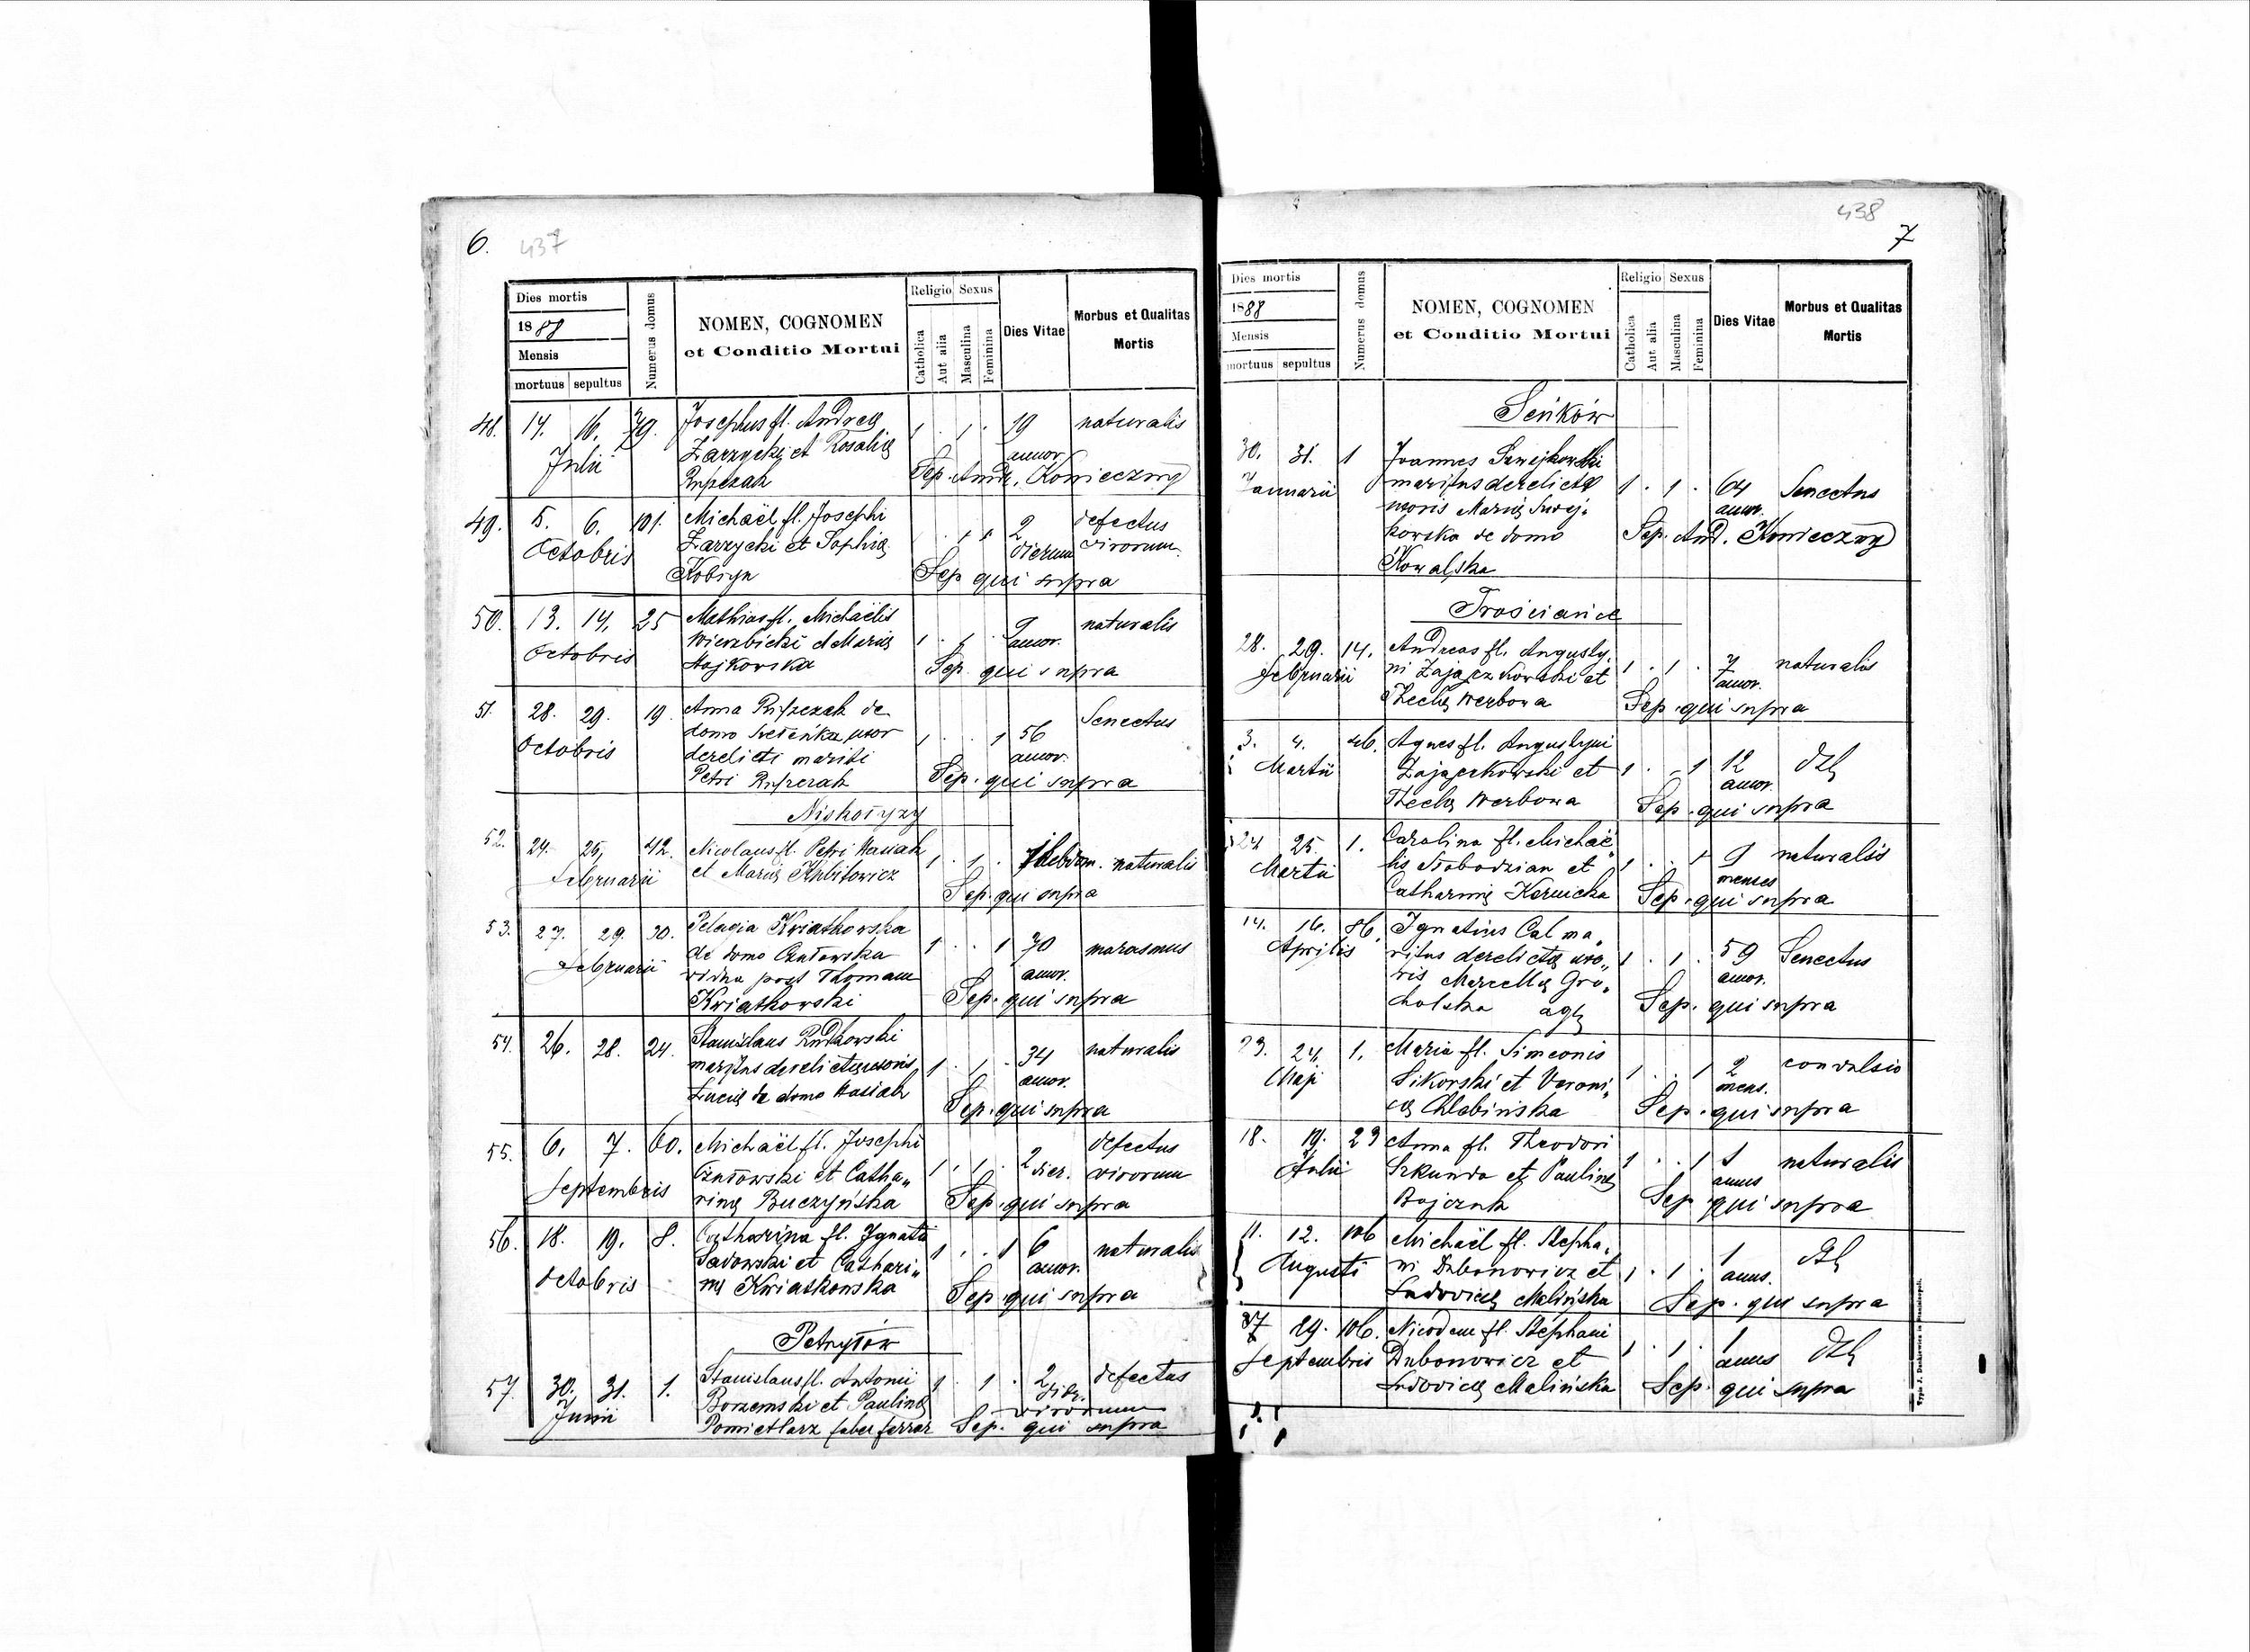 6. 437
Dies mortis
1888
Mensis
mortuus sepultus
Numerus domus
NOMEN, COGNOMEN
et Conditio Mortui
Religio Sexus
Catholica
Aut alia
Masculina
Feminina
Dies Vitae
Morbus et Qualitas
Mortis
48. 14. 16. 79. Josephus fl. Andreę 1 . 1 . 19 naturalis
Julii Zarzycki et Rosalię annor.
Sep. Andr. Konieczny
49. 5. 6. 101. Michaël fl. Josephi 2 defectus
Octobris Zarzycki et Sophię dierum virorum
Kobryn Sep qui supra
50. 13. 14. 25 Mathias fl. Michaëlis 9 naturalis
Octobris Wierzbicki et Marię 1 . 1 . annor.
Hajkowska Sep. qui supra
51. 28. 29. 19 Anna de Senectus
Octobris domo uxor 1 . . 1 56
derelicti mariti annor.
Petri Sep. qui supra
Niskołyzy
52. 24. 25. 42. Nicolaus fl. Petri Hasiak 1 . 1 . hebdom. naturalis
Februarii et Marię
Sep. qui supra
53. 27. 29. 30. Pelagia Kwiatkowska 1 . . 1 70 marasmus
Februarii de domo
vidua post Thomam annor.
Kwiatkowski Sep. qui supra
54. 26. 28. 24. Stanislaus Rudkowski 34 naturalis
maritus derelictę uxoris 1 . 1 . annor.
Lucię de domo Hasiak Sep. qui supra
55. 6. 7. 60. Michaël fl. Josephi defectus
et Catha„ 1 . 1 . 2 dier. virorum
Septembris rinę Buczyńska Sep. qui supra
56. 18. 19. 8. Catharina fl. Ignatii 1 . . 1 6 naturalis
Octobris Sadowski et Cathari„ annor.
nę Kwiatkowska Sep. qui supra
Petryłów
57. 30. 31. 1. Stanislaus fl. Antonii 1 . 1 . 2 defectus
Junii Borzemski et Paulinę virorum
faber ferrar Sep. qui supra
438
7
Dies mortis
1888
Mensis
mortuus sepultus
Numerus domus
NOMEN, COGNOMEN
et Conditio Mortui
Religio Sexus
Catholica
Aut alia
Masculina
Feminina
Dies Vitae
Morbus et Qualitas
Mortis
Seńków
30. 31. 1 Joannes
Januarii maritus derelictę 1 . 1 . 64 Senectus
uxoris Marię annor.
kowska de domo Sep. And. Konieczny
Kowalska
Trościańce
28. 29. 14. Andreas fl. Augusty„ 1 . 1 . 7 naturalis
Februarii ni Zajączkowski et annor.
Theclę Werbowa Sep. qui supra
3. 4. 46. Agnes fl. Augustyni 1 . . 1 12 dtł
Martii Zajączkowski et annor.
Theclę Werbowa Sep. qui supra
24 25. 1. Carolina fl. Michaë„ 1 . . 1 9 naturalis
Martii lis Słobodzian et menses
Catharinę Kernicka Sep. qui supra
14. 16. 86. Ignatius Cal ma„ 59 Senectus
Aprilis ritus derelictę uxo„ 1 . 1 . annor.
ris Marcellę Gro„
holska agr Sep. qui supra
23. 24. 1. Maria fl. Simeonis 1 . . 1 2 convulsio
Maji Sikorski et Veroni„ mens.
cę Chlebińska Sep. qui supra
18. 19. 23 Anna fl. Theodori 1 . . 1 1 naturalis
Julii Szkunda et Paulinę annus
Bojczuk Sep. qui supra
11. 12. 106 Michaël fl. Stepha„ 1 dtł
Augusti ni Dubonowicz et 1 . 1 . annus.
Ludovicę Malińska Sep. qui supra
27 29. 106. Nicodem fl. Stephani 1 . 1 . 1 dtł
Septembris Dubonowicz et annus
Ludovicę Malińska Sep. qui supra